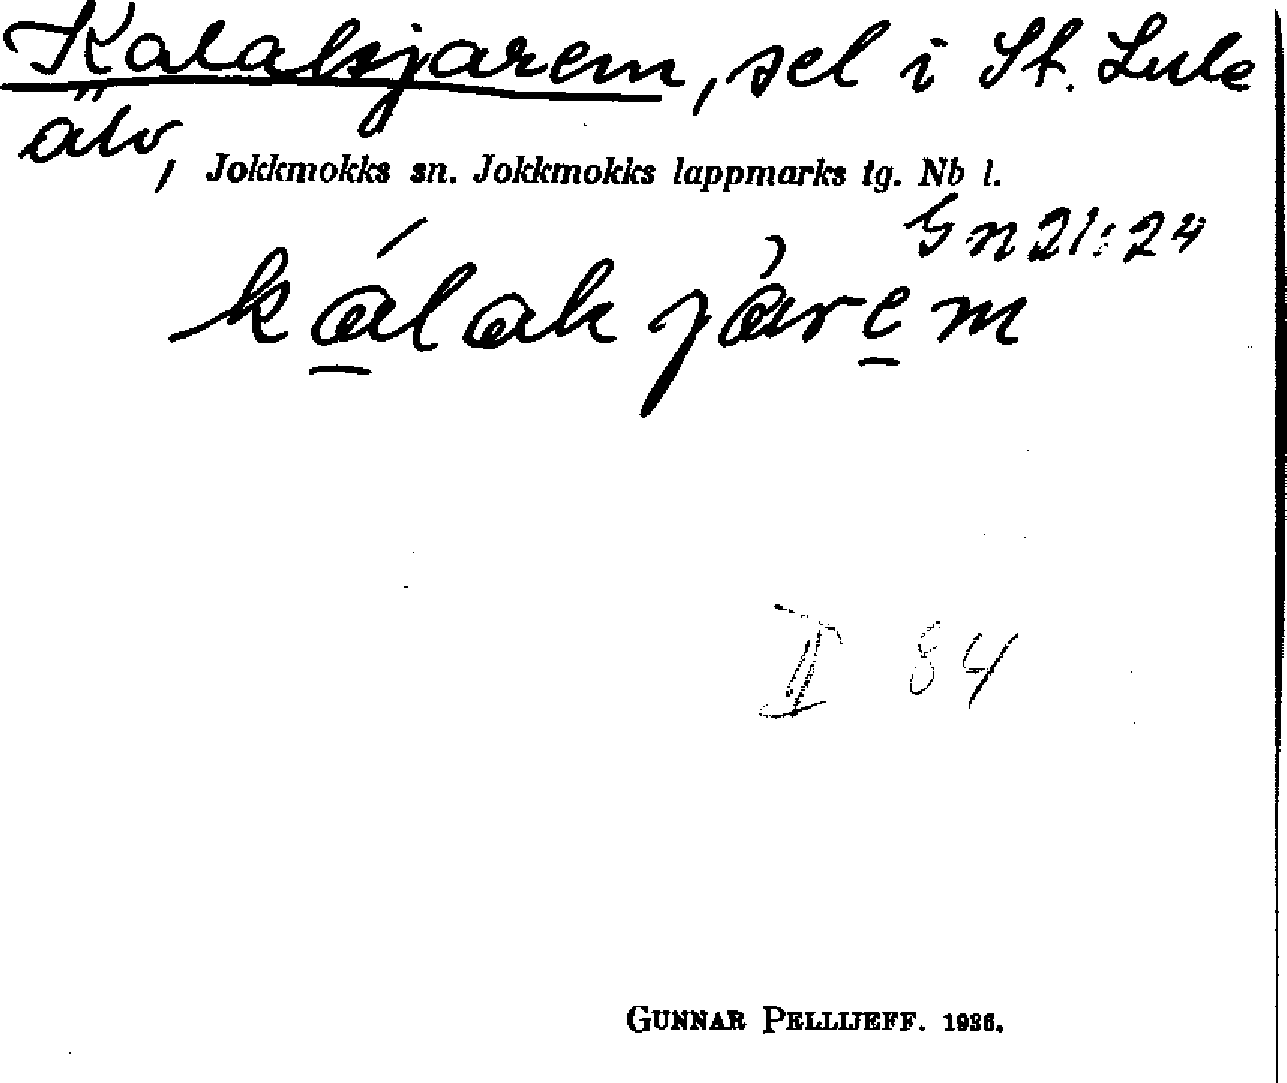 Kalakjarem, sel i St. Lule
älv,
Jokkmokks sn. Jokkmokks lappmarks tg. Nb l.
Gn 21:24
kálak járem
II 84
GUNNAR PELLIJEFF. 1936.